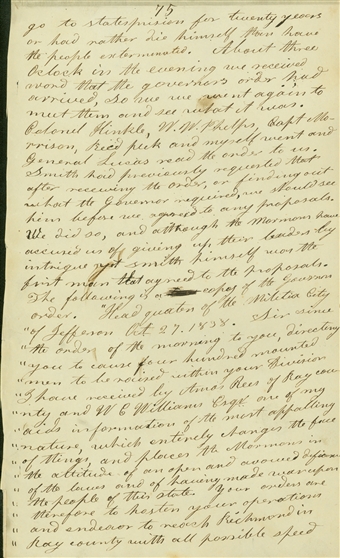 75
go to statesprison for twenty years
or had rather die himself than have
the people exterminated. About three
Oclock in the evening we received
word that the governors order had
arrived, so we went again to
meet them and see what it was.
Colonel Hinkle, W. W. Phelps, Capt Mo-
rrison, Reed peck and myself went and
General Lucas read the order to us.
Smith had previously requested that
after receiving the order, or finding out
what the Governor required, we should see
him before we agreed to any proposals.
We did so, and although the Mormons have
accused us of giving up their leaders by
intrigue yet smith himself was the
first man that agreed to the proposals.
The following is a copy of the Governors
order. "Head quarters of the Militia City
"of Jefferson Oct 27. 1838. Sir since
"the order of the morning to you, directing
"you to cause four hundred mounted
"men to be raised within your Division
"I have received by Amos Rees of Ray cou-
"nty and W C Williams Esqr one of my
"aids information of the most appalling
"nature, which entirely changes the face
"of things, and places the Mormons in
"the attitude of an open and avowed defiance
"of the laws and of having made war upon
"the people of this state. Your orders are
"therefore to hasten your operations
"and endeavor to reach Richmond in
"Ray county with all possible speed